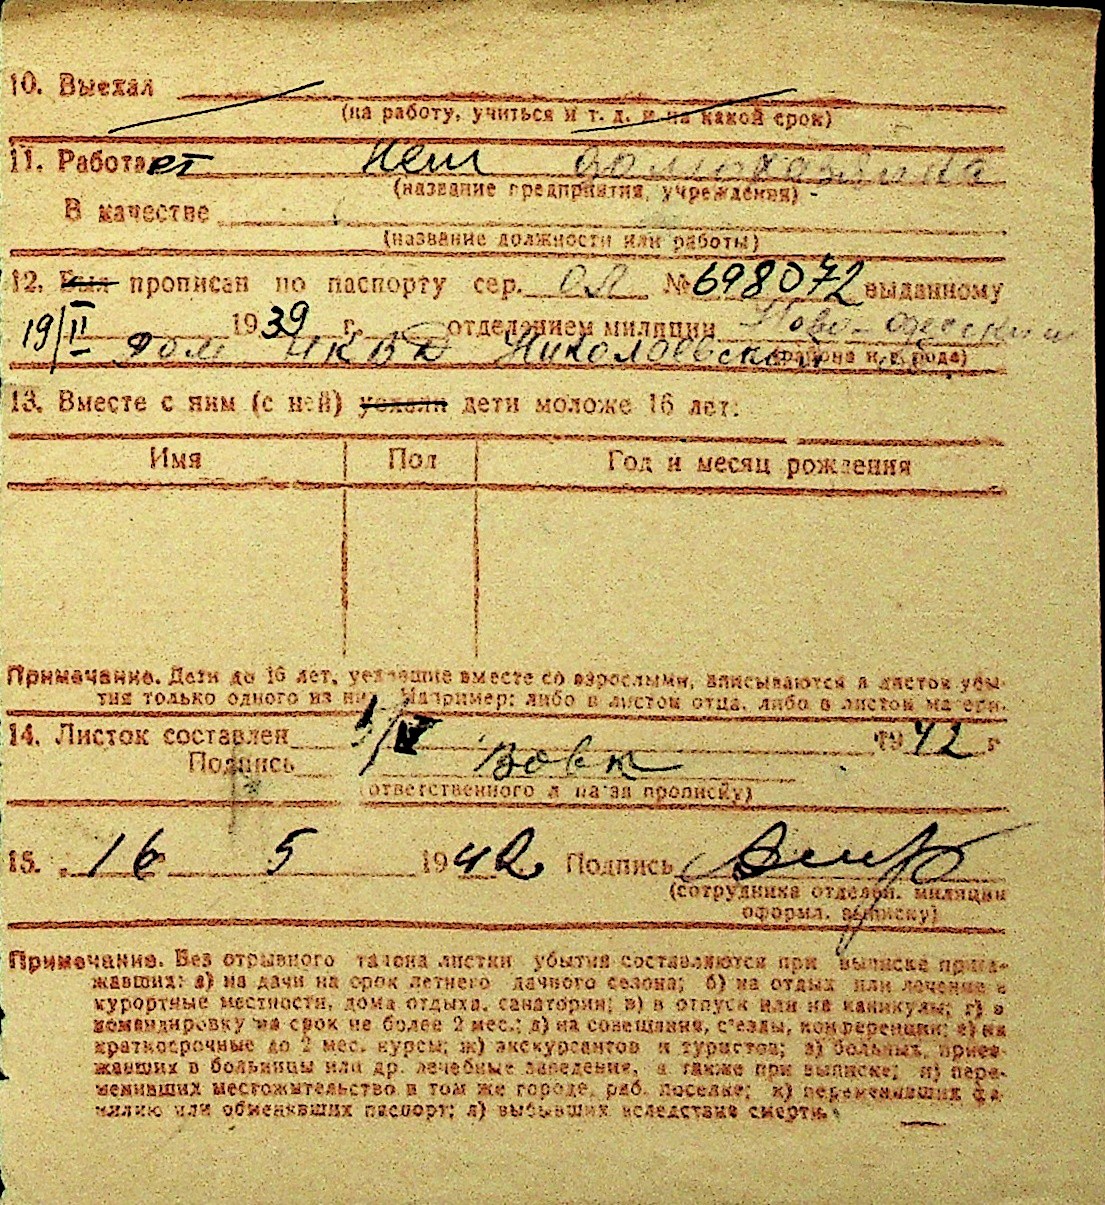 10. Выехал
(на работу, учиться и т. д. и на какой срок)
11. Работает нет домохозяйка
(название предприятия, учреждения)
В качестве
(название должности или работы)
12. Был прописан по паспорту сер. № 698072 выданному
19/II 1939 г. отделением милиции Ново-Одесским
(района и города)
РОМ НКВД Николаевской
13. Вместе с ним (с ней) уехали дети моложе 16 лет:
Имя Пол Год и месяц рождения
Примечание. Дети до 16 лет, уехавшие вместе со взрослыми, вписываются в листок убы-
тия только одного из них. Например: либо в листок отца, либо в листок матери.
14. Листок составлен 1942 г
Подпись Вовк
(ответственного лица за прописку)
15. 16 5 1942 Подпись
(сотрудника отделен. милиции
оформл. выписку)
Примечание. Без отрывного талона листки убытия составляются при выписке приез-
жавших: а) на дачи на срок летнего дачного сезона; б) на отдых или лечение в
курортные местности, дома отдыха, санатории; в) в отпуск или на каникулы; г) в
командировку на срок не более 2 мес.; д) на совещания, с'езды, конференции; е) на
краткосрочные до 2 мес. курсы; ж) экскурсантов и туристов; з) больных, приез-
жавших в больницы или др. лечебные заведения, а также при выписке; и) пере-
менивших местожительство в том же городе, раб. поселке; к) переменивших фа-
милию или обменявших паспорт; л) выбывших вследствие смерти.